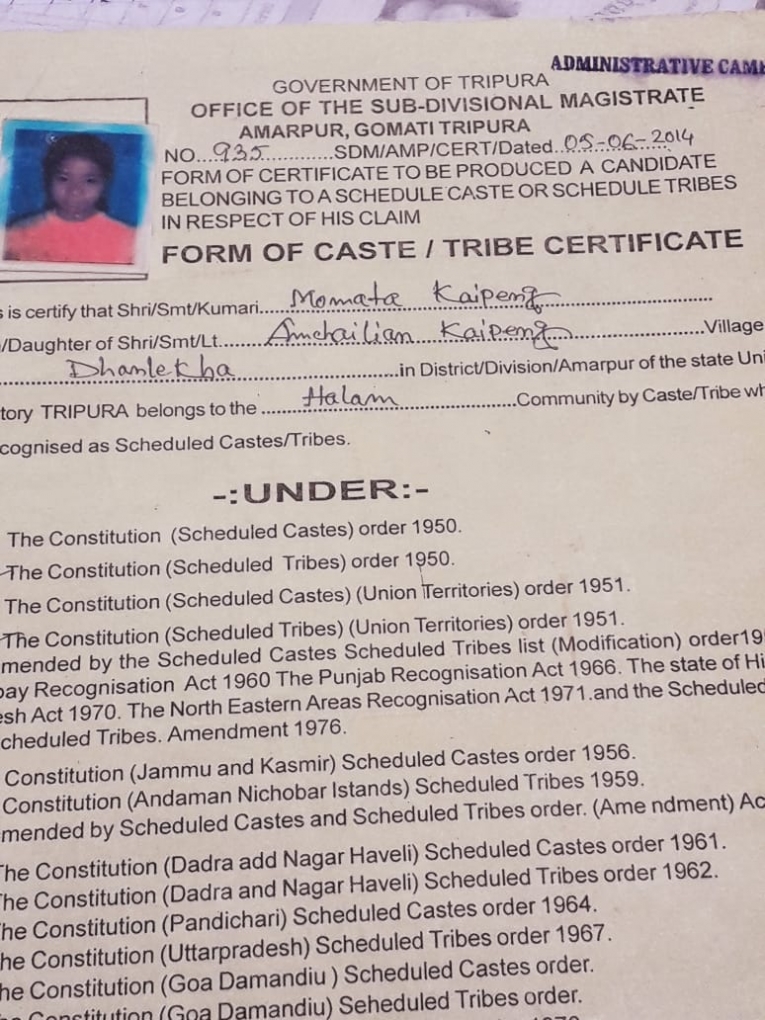 ADMINISTRATIVE CAM
GOVERNMENT OF TRIPURA
OFFICE OF THE SUB-DIVISIONAL MAGISTRATE
AMARPUR, GOMATI TRIPURA
NO...935.............SDM/AMP/CERT/Dated..05-06-2014
FORM OF CERTIFICATE TO BE PRODUCED A CANDIDATE
BELONGING TO A SCHEDULE CASTE OR SCHEDULE TRIBES
IN RESPECT OF HIS CLAIM
FORM OF CASTE / TRIBE CERTIFICATE
s is certify that Shri/Smt/Kumari....Momata Kaipeng..........
/Daughter of Shri/Smt/Lt.......Amchailian Kaipeng..........Village
.........Dhanlekha..........in District/Division/Amarpur of the state Uni
tory TRIPURA belongs to the .......Halam..........Community by Caste/Tribe wh
cognised as Scheduled Castes/Tribes.
-:UNDER:-
The Constitution (Scheduled Castes) order 1950.
The Constitution (Scheduled Tribes) order 1950.
The Constitution (Scheduled Castes) (Union Territories) order 1951.
The Constitution (Scheduled Tribes) (Union Territories) order 1951.
mended by the Scheduled Castes Scheduled Tribes list (Modification) order19
bay Recognisation Act 1960 The Punjab Recognisation Act 1966. The state of Hi
esh Act 1970. The North Eastern Areas Recognisation Act 1971.and the Scheduled
cheduled Tribes. Amendment 1976.
Constitution (Jammu and Kasmir) Scheduled Castes order 1956.
Constitution (Andaman Nichobar Istands) Scheduled Tribes 1959.
mended by Scheduled Castes and Scheduled Tribes order. (Ame ndment) Ac
The Constitution (Dadra add Nagar Haveli) Scheduled Castes order 1961.
he Constitution (Dadra and Nagar Haveli) Scheduled Tribes order 1962.
he Constitution (Pandichari) Scheduled Castes order 1964.
he Constitution (Uttarpradesh) Scheduled Tribes order 1967.
he Constitution (Goa Damandiu ) Scheduled Castes order.
Constitution (Goa Damandiu) Seheduled Tribes order.